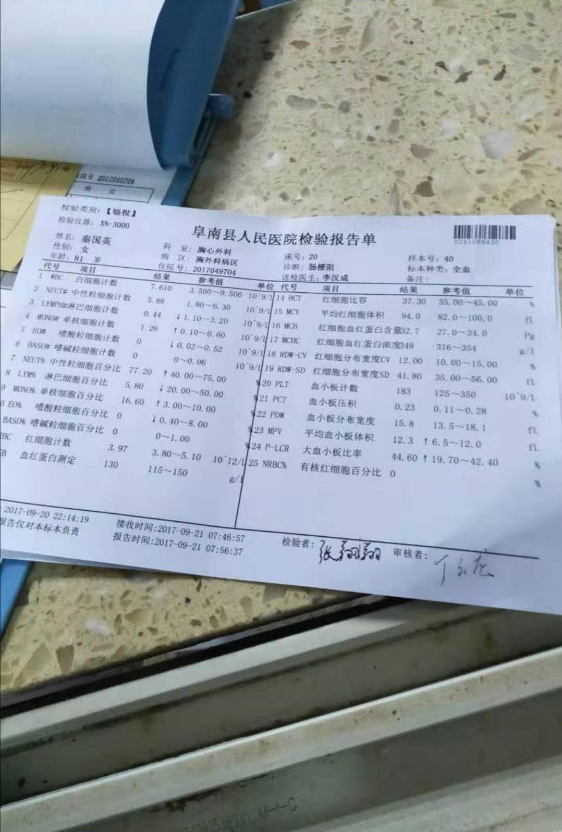 院号 2012042704
终 止
检验类别:【临检】
检验仪器: XN-3000
阜南县人民医院检验报告单
姓名: 秦国英 科 室: 胸心外科 床号: 20 样本号: 40
性别: 女 病 区: 胸外科病区 诊断: 肠梗阻 标本种类: 全血
年龄: 81 岁 住院号: 2017049704 送检医生: 李汉成 备注:
代号 项目 结果 参考值 单位 代号 项目 结果 参考值 单位
1 WBC 白细胞计数 7.610 3.500~9.500 10^9/L 14 HCT 红细胞比容 37.30 35.00~45.00 %
2 NEUT# 中性粒细胞计数 5.88 1.80~6.30 10^9/L 15 MCV 平均红细胞体积 94.0 82.0~100.0 fL
3 LYMPH# 淋巴细胞计数 0.44 ↓ 1.10~3.20 10^9/L 16 MCH 红细胞血红蛋白含量 32.7 27.0~34.0 Pg
4 MONO# 单核细胞计数 1.26 ↑ 0.10~0.60 10^9/L 17 MCHC 红细胞血红蛋白浓度 349 316~354 g/l
5 EO# 嗜酸粒细胞计数 0 ↓ 0.02~0.52 10^9/L 18 RDW-CV 红细胞分布宽度CV 12.00 10.00~15.00 %
6 BASO# 嗜碱粒细胞计数 0 0~0.06 10^9/L 19 RDW-SD 红细胞分布宽度SD 41.80 35.00~56.00 fL
7 NEUT% 中性粒细胞百分比 77.20 ↑ 40.00~75.00 % 20 PLT 血小板计数 183 125~350 10^9/L
8 LYM% 淋巴细胞百分比 5.80 ↓ 20.00~50.00 % 21 PCT 血小板压积 0.23 0.11~0.28 %
9 MONO% 单核细胞百分比 16.60 ↑ 3.00~10.00 % 22 PDW 血小板分布宽度 15.8 13.5~18.1 fL
0 EO% 嗜酸粒细胞百分比 0 ↓ 0.40~8.00 % 23 MPV 平均血小板体积 12.3 ↑ 6.5~12.0 fL
BASO% 嗜碱粒细胞百分比 0 0~1.00 % 24 P-LCR 大血小板比率 44.60 ↑ 19.70~42.40 %
BC 红细胞计数 3.97 3.80~5.10 10^12/L 25 NRBC% 有核红细胞百分比 0 %
GB 血红蛋白测定 130 115~150 g/L
2017-09-20 22:14:19 接收时间:2017-09-21 07:46:57 检验者: 张翔翔 审核者:
报告仅对本标本负责 报告时间:2017-09-21 07:56:37